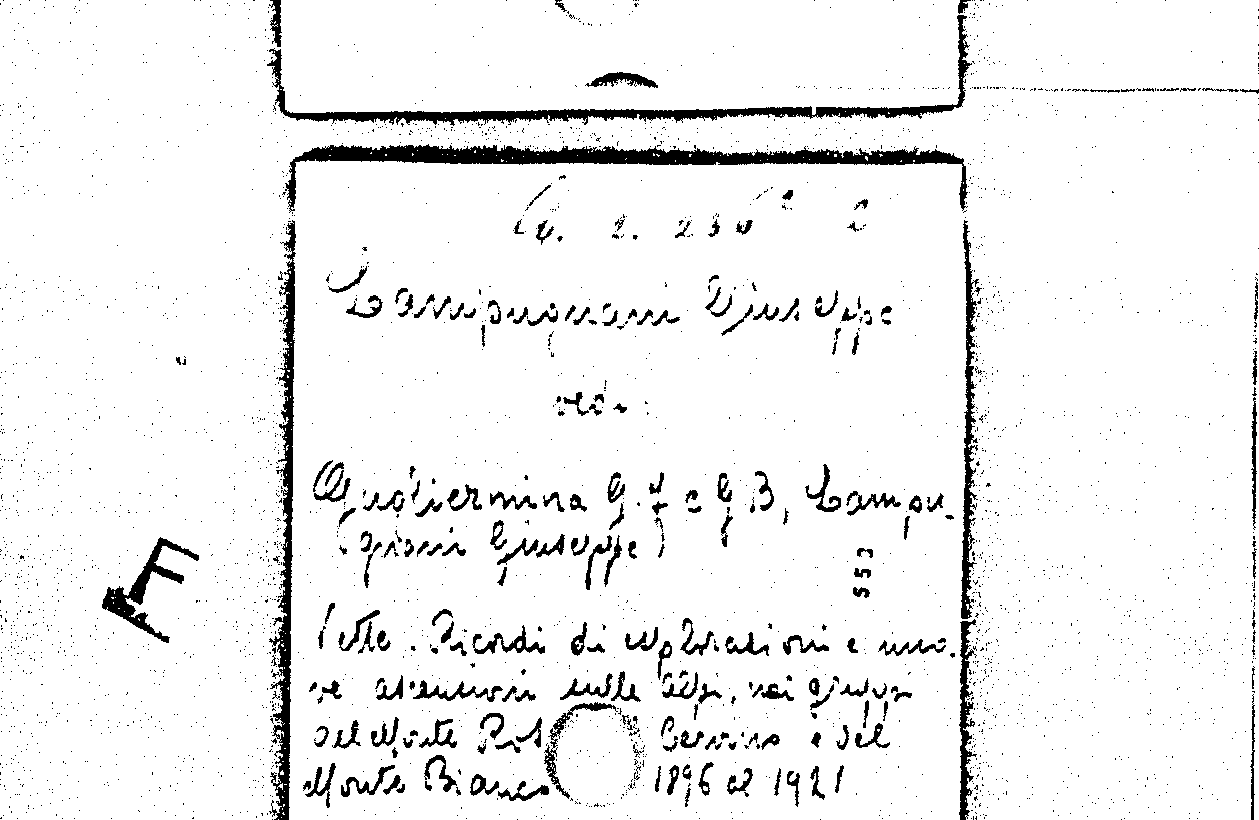 6. 2. 236 c
Lampugnani Giuseppe
vedi:
Gugliermina G. F. e G B, Lampu-
(gnani Giuseppe)
553
Vette. Ricordi di esplorazioni e nuo-
ve ascensioni sulle Alpi, nei gruppi
del Monte Ros Cervino e del
Monte Bianco 1896 al 1921
F